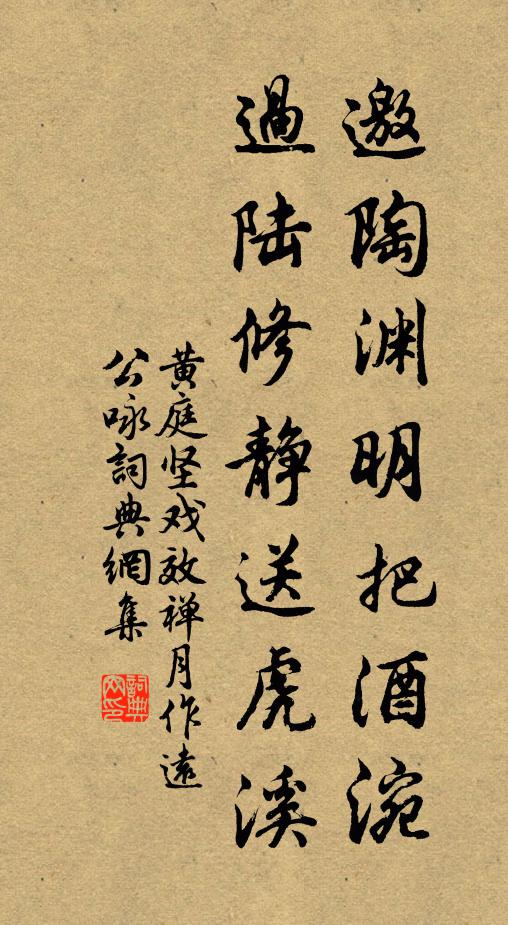 邀陶渊明把酒涴
過陆修静送虎溪
黄庭坚戏效禅月作遠
公咏詞典網集